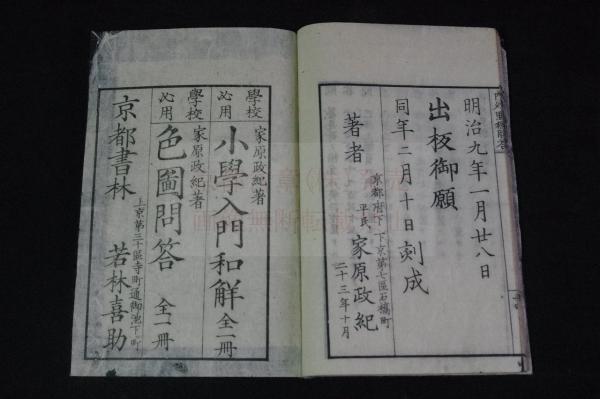 明治九年一月廿八日
出板御願
同年二月十日刻成
京都府下下京第七區石橋町
著者 平民 家原政紀
二十三年十月
家原政紀著
學校必用 小學入門和解 全一冊
家原政紀著
學校必用 色圖問答 全一冊
上京第三十區寺町通御池下町
京都書林 若林喜助